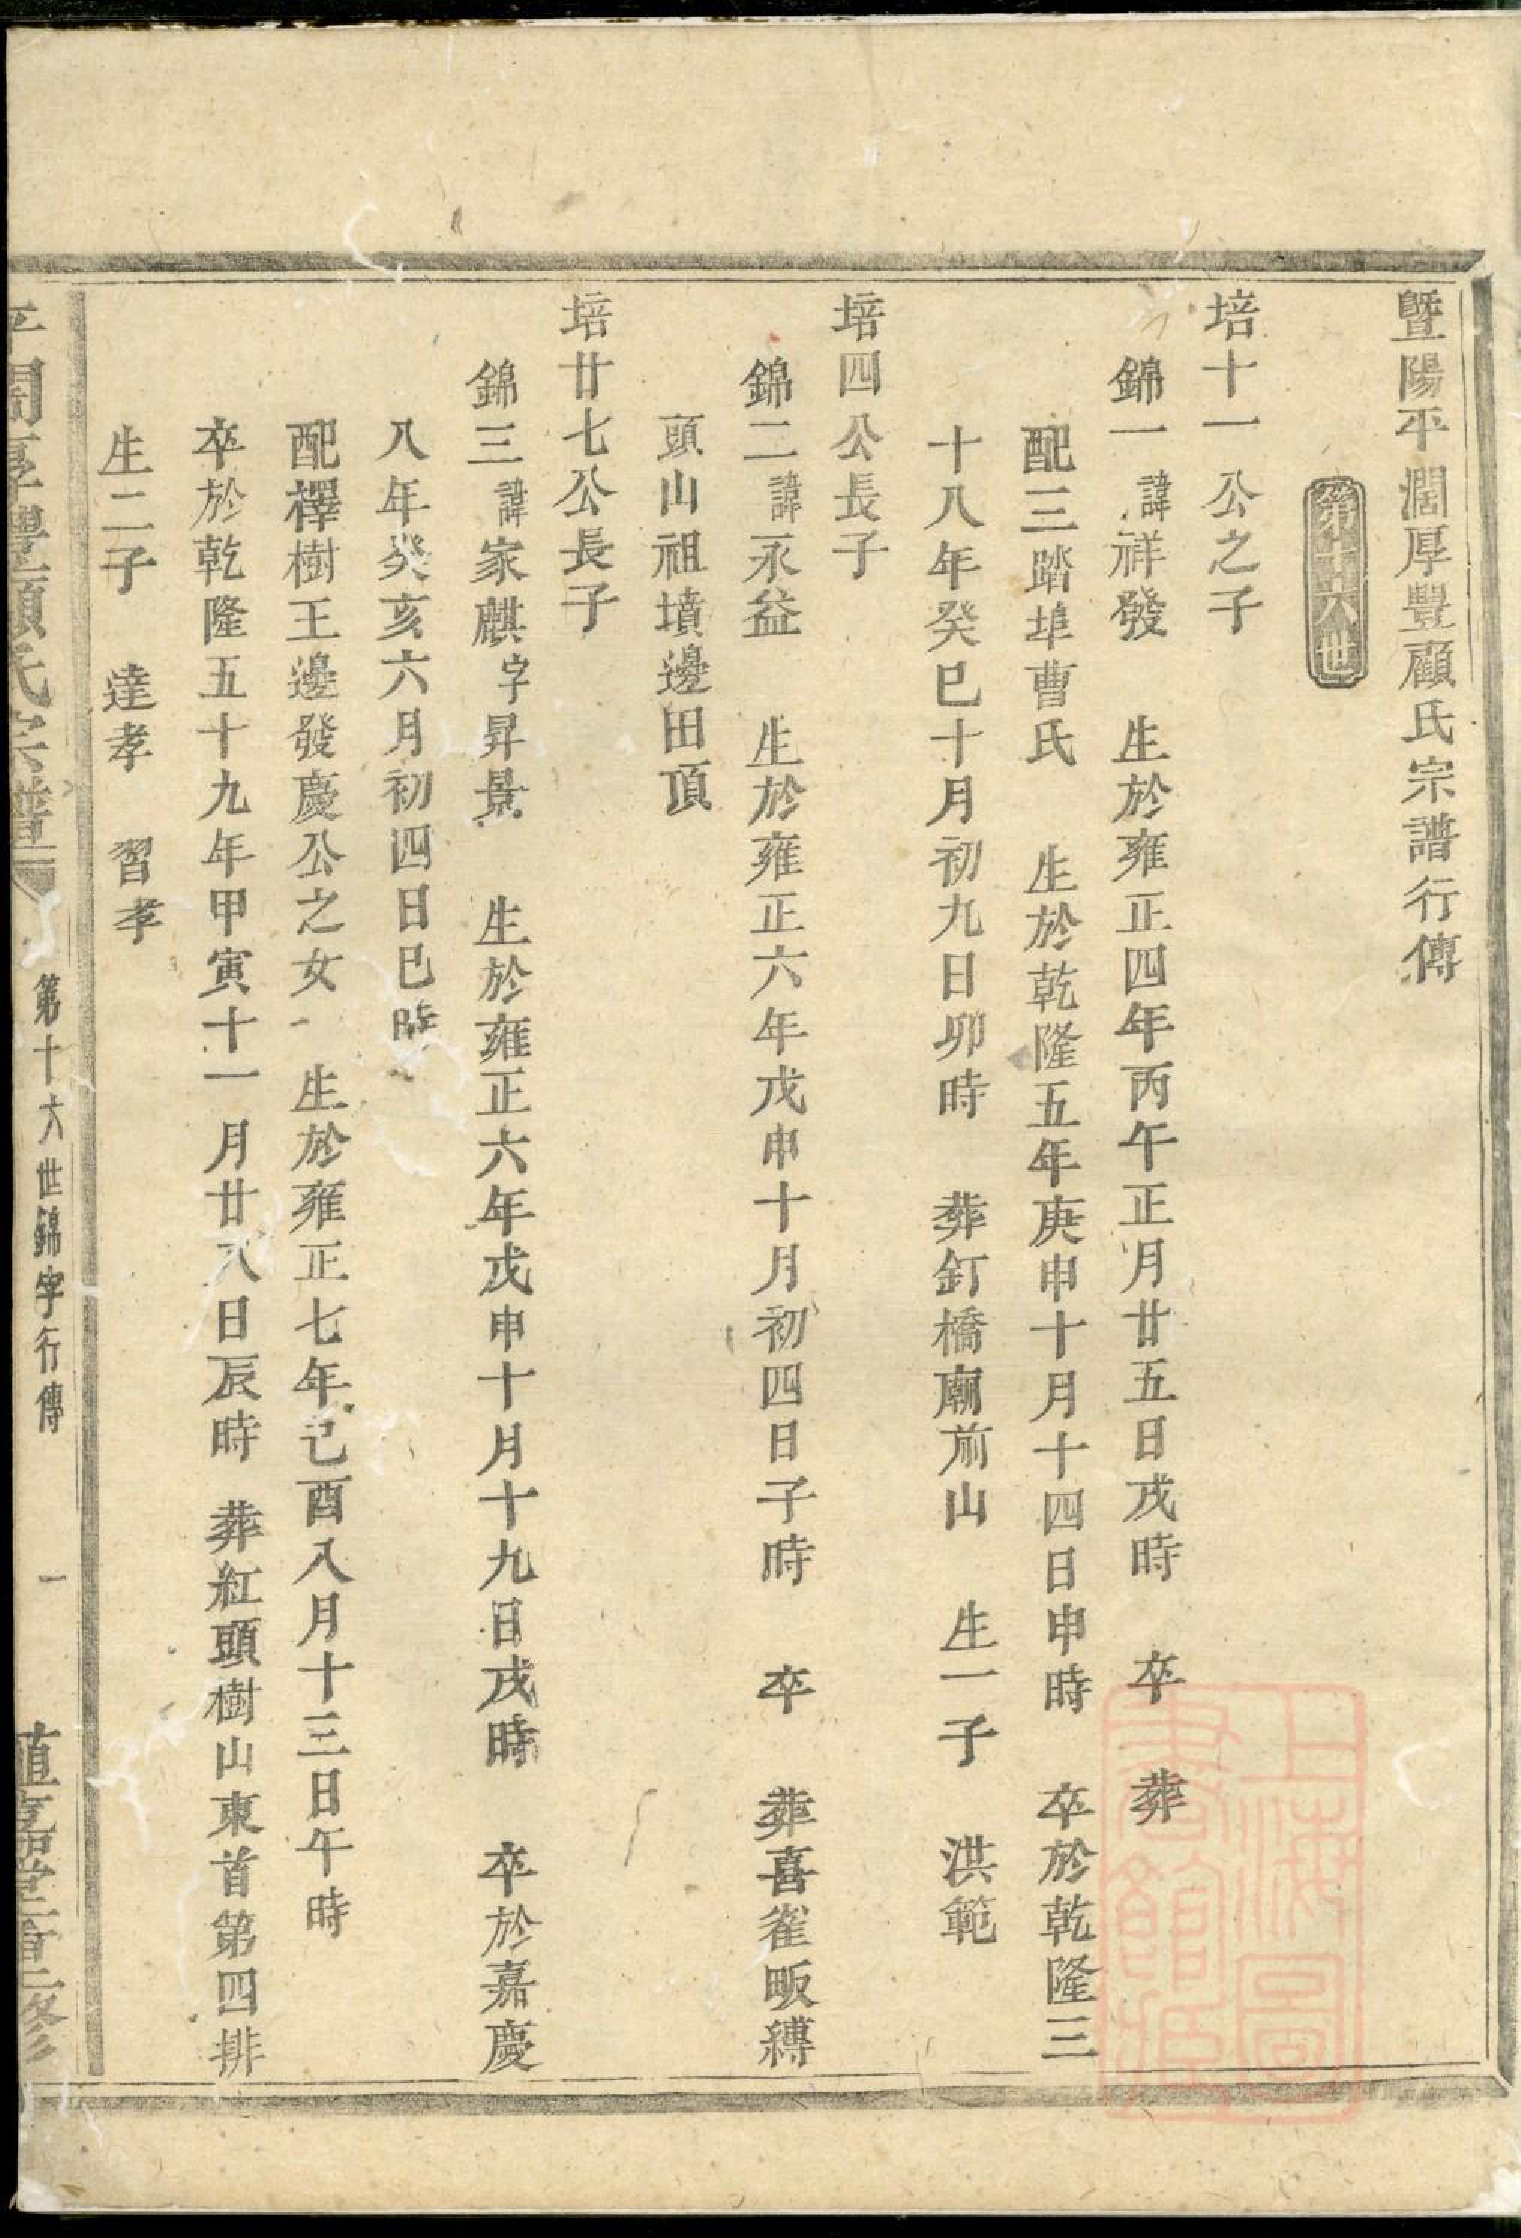 暨陽平濶厚豐顧氏宗譜行傳
第十六世
培十一公之子
錦一諱祥發 生於雍正四年丙午正月廿五日戌時 卒 葬
配三踏埠曹氏 生於乾隆五年庚申十月十四日申時 卒於乾隆三
十八年癸巳十月初九日卯時 葬釘橋廟前山 生一子 洪範
培四公長子
錦二諱永益 生於雍正六年戊申十月初四日子時 卒 葬喜雀畈縛
頭山祖墳邊田頂
培廿七公長子
錦三諱家麒字昇景 生於雍正六年戊申十月十九日戌時 卒於嘉慶
八年癸亥六月初四日巳時
配檡樹王邊發慶公之女 生於雍正七年己酉八月十三日午時
卒於乾隆五十九年甲寅十一月廿八日辰時 葬紅頭樹山東首第四排
生二子 達孝 習孝
平濶厚豐顧氏宗譜 第十六世錦字行傳 一 重修
上海圖
書館藏